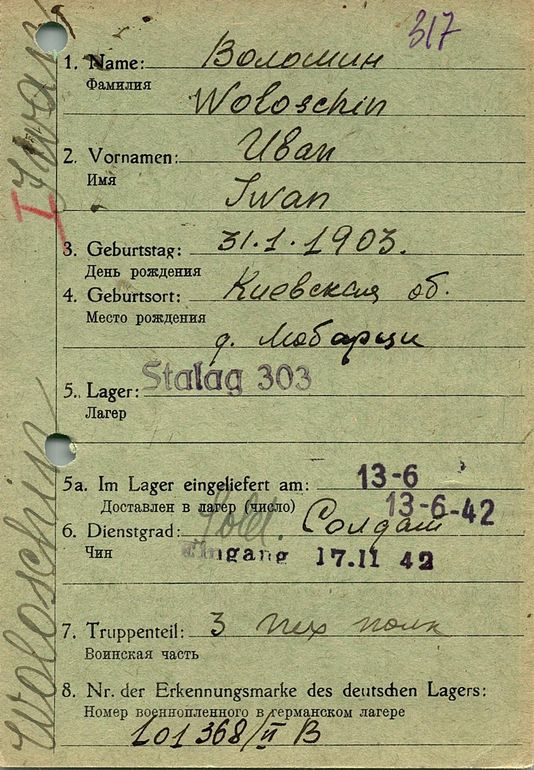 317
1. Name: Воломин
Фамилия
Woloschin
2. Vornamen: Иван
Имя
Iwan
I
3. Geburtstag: 31.1.1903.
День рождения
4. Geburtsort: Киевская об.
Место рождения
д.
5. Lager: Stalag 303
Лагерь
5a. Im Lager eingeliefert am: 13-6
Доставлен в лагер (число) 13-6-42
6. Dienstgrad: Sold. Солдат
Чин Eingang 17.11 42
7. Truppenteil: 3 пех полк
Воинская часть
8. Nr. der Erkennungsmarke des deutschen Lagers:
Номер военнопленного в германском лагере
101368/II B
Woloschin Iwan